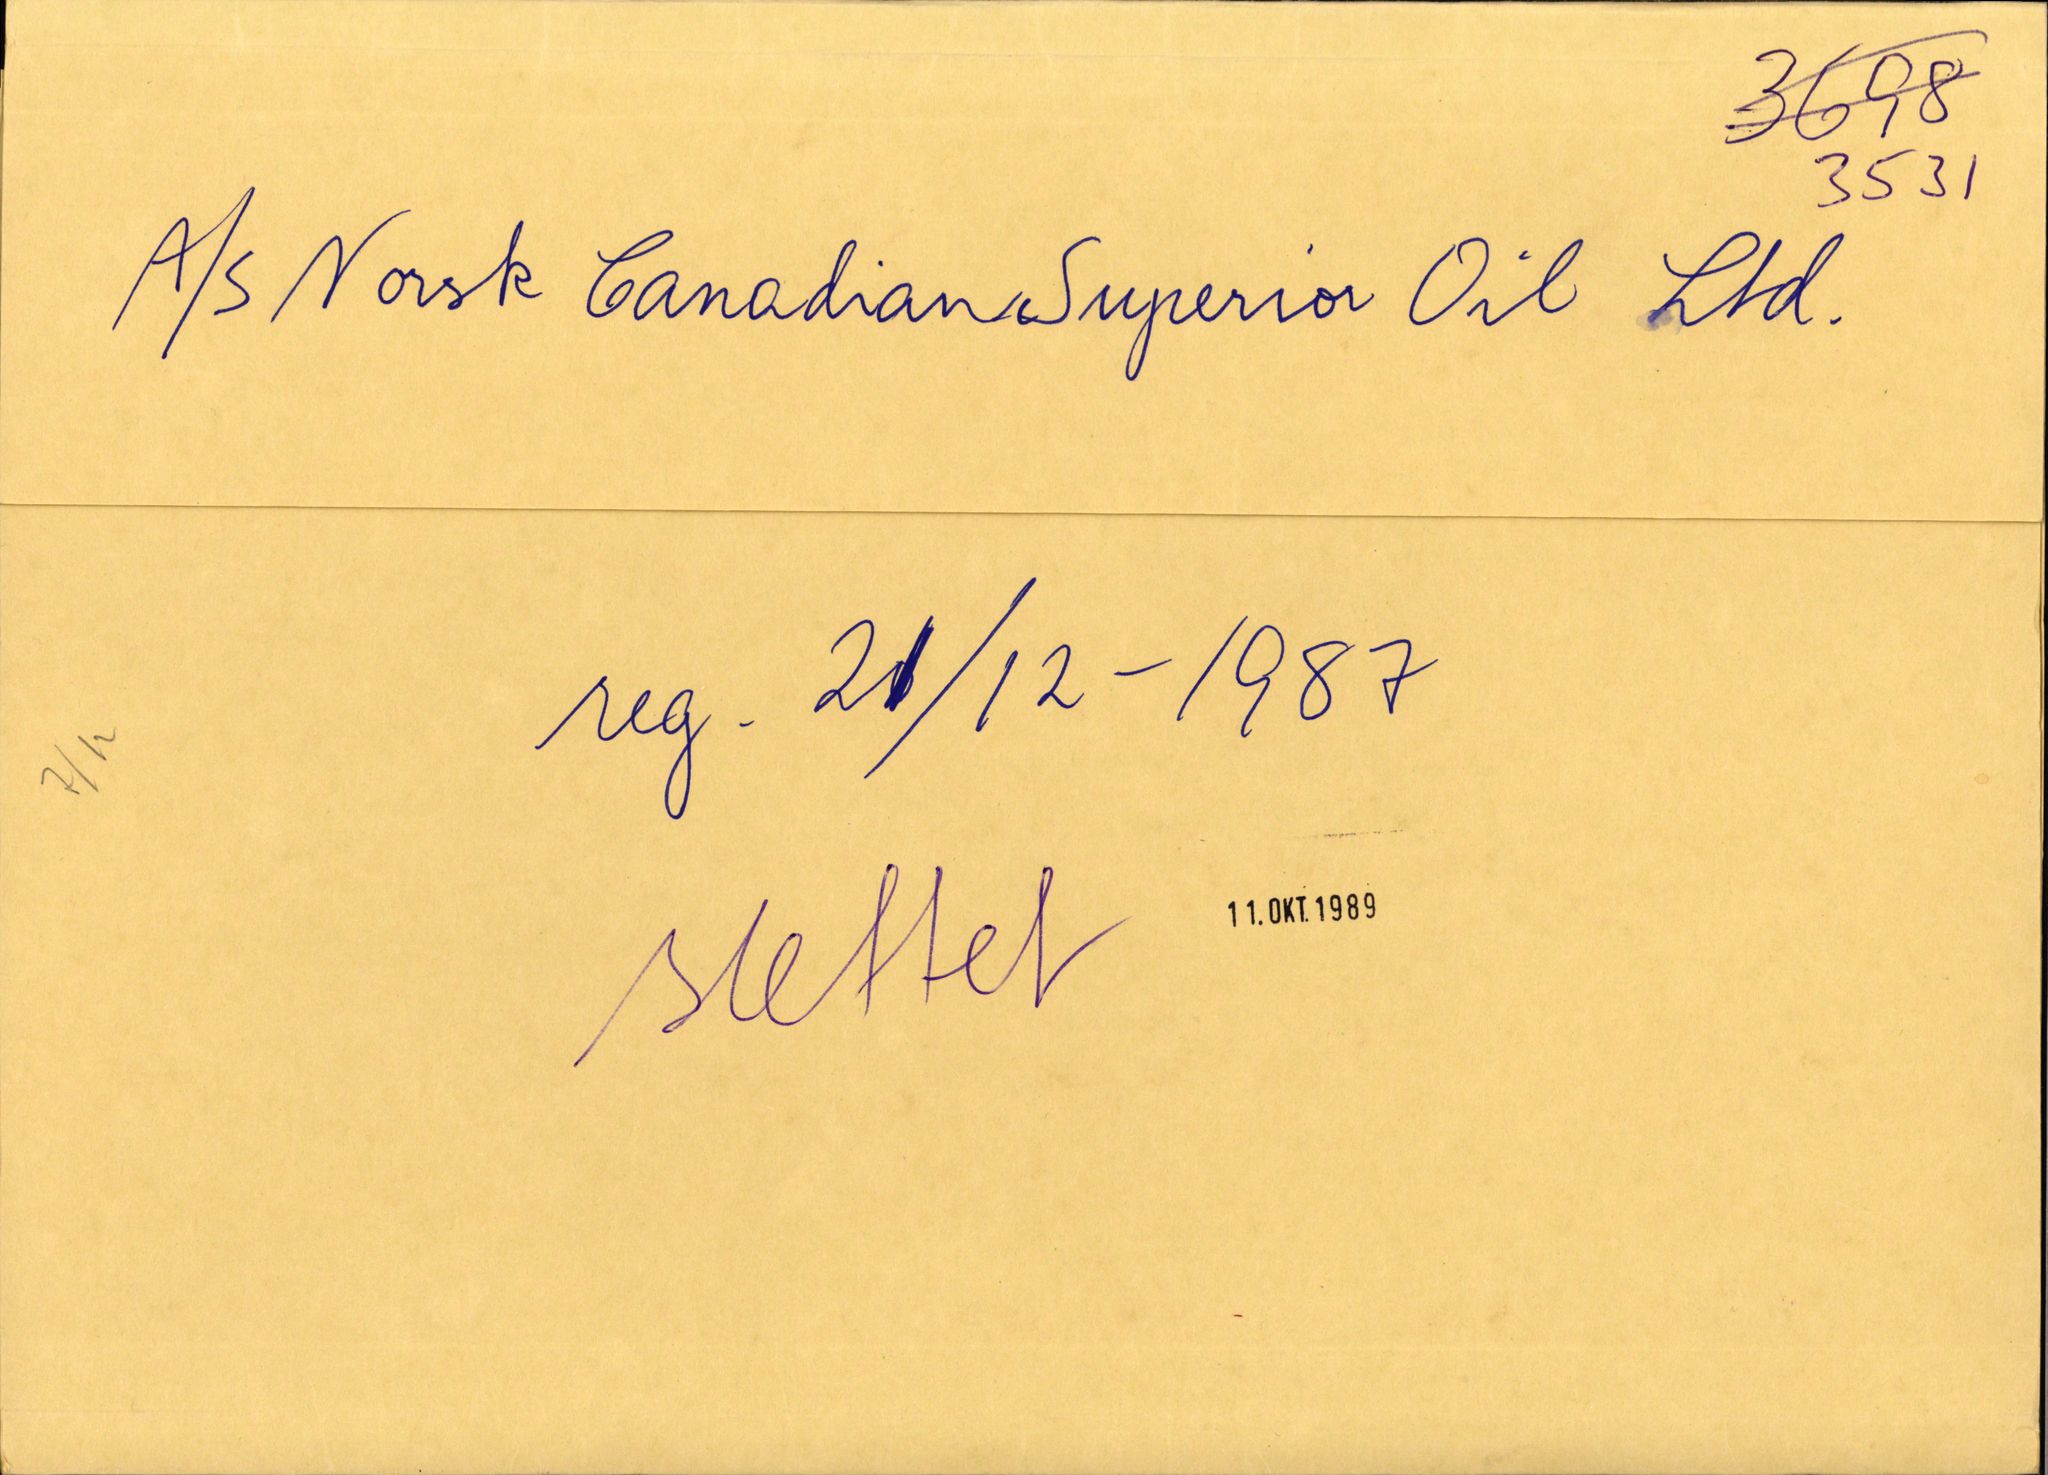 3698
3531
A/S Norsk Canadian Superior Oil Ltd.
reg. 21/12-1987
slettet 11.OKT.1989